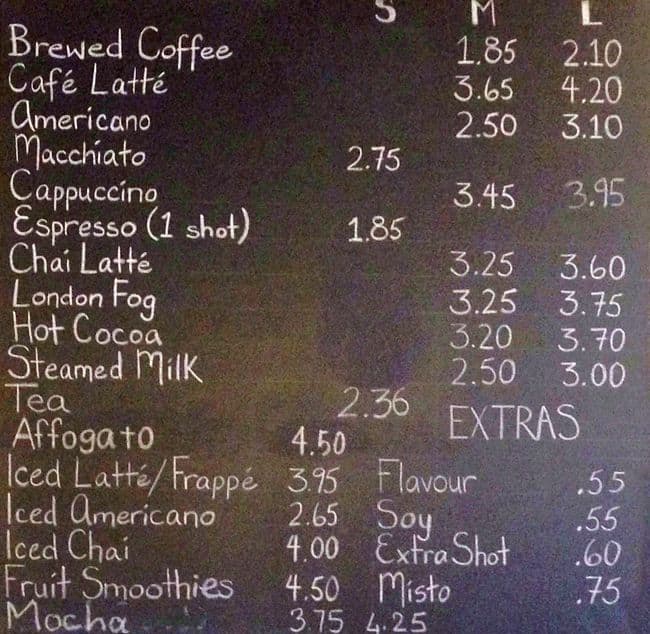 S M L
Brewed Coffee 1.85 2.10
Café Latté 3.65 4.20
Americano 2.50 3.10
Macchiato 2.75
Cappuccino 3.45 3.95
Espresso (1 shot) 1.85
Chai Latté 3.25 3.60
London Fog 3.25 3.75
Hot Cocoa 3.20 3.70
Steamed Milk 2.50 3.00
Tea 2.36
EXTRAS
Affogato 4.50
Iced Latté/Frappé 3.95 Flavour .55
Iced Americano 2.65 Soy .55
Iced Chai 4.00 Extra Shot .60
Fruit Smoothies 4.50 Misto .75
Mocha 3.75 4.25